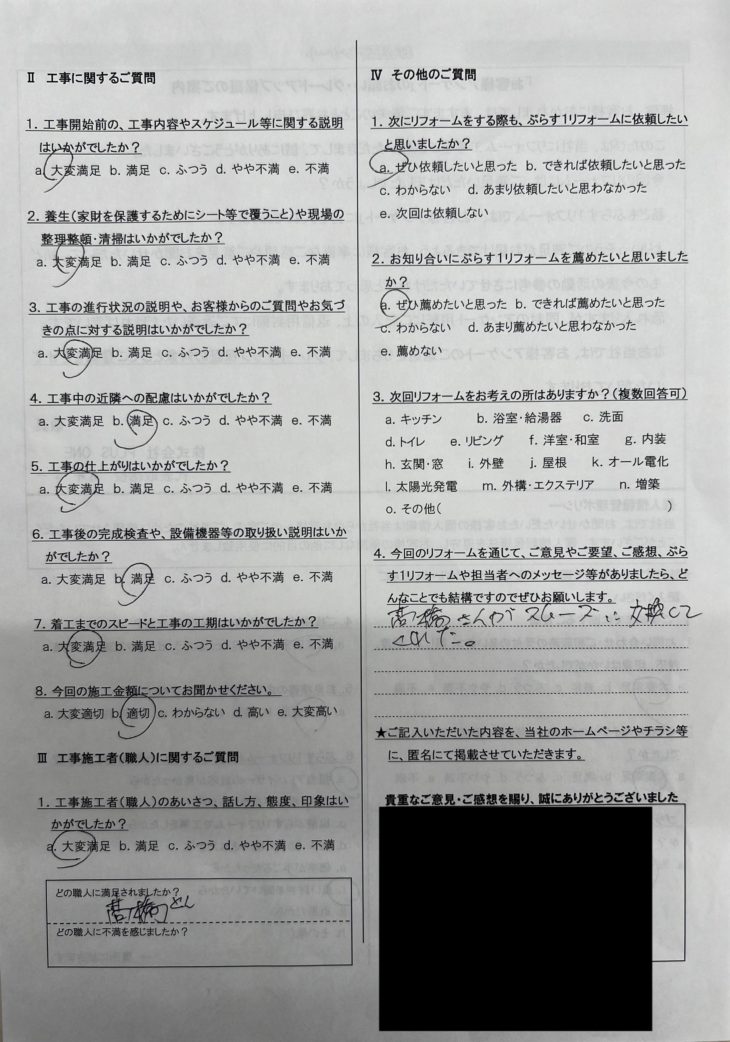 Ⅱ 工事に関するご質問
1. 工事開始前の、工事内容やスケジュール等に関する説明
はいかがでしたか?
a. 大変満足 b. 満足 c. ふつう d. やや不満 e. 不満
2. 養生(家財を保護するためにシート等で覆うこと)や現場の
整理整頓・清掃はいかがでしたか?
a. 大変満足 b. 満足 c. ふつう d. やや不満 e. 不満
3. 工事の進行状況の説明や、お客様からのご質問やお気づ
きの点に対する説明はいかがでしたか?
a. 大変満足 b. 満足 c. ふつう d. やや不満 e. 不満
4. 工事中の近隣への配慮はいかがでしたか?
a. 大変満足 b. 満足 c. ふつう d. やや不満 e. 不満
5. 工事の仕上がりはいかがでしたか?
a. 大変満足 b. 満足 c. ふつう d. やや不満 e. 不満
6. 工事後の完成検査や、設備機器等の取り扱い説明はいか
がでしたか?
a. 大変満足 b. 満足 c. ふつう d. やや不満 e. 不満
7. 着工までのスピードと工事の工期はいかがでしたか?
a. 大変満足 b. 満足 c. ふつう d. やや不満 e. 不満
8. 今回の施工金額についてお聞かせください。
a. 大変適切 b. 適切 c. わからない d. 高い e. 大変高い
Ⅲ 工事施工者(職人)に関するご質問
1. 工事施工者(職人)のあいさつ、話し方、態度、印象はい
かがでしたか?
a. 大変満足 b. 満足 c. ふつう d. やや不満 e. 不満
どの職人に満足されましたか?
髙橋さん
どの職人に不満を感じましたか?
Ⅳ その他のご質問
1. 次にリフォームをする際も、ぷらす1リフォームに依頼したい
と思いましたか?
a. ぜひ依頼したいと思った b. できれば依頼したいと思った
c. わからない d. あまり依頼したいと思わなかった
e. 次回は依頼しない
2. お知り合いにぷらす1リフォームを薦めたいと思いました
か?
a. ぜひ薦めたいと思った b. できれば薦めたいと思った
c. わからない d. あまり薦めたいと思わなかった
e. 薦めない
3. 次回リフォームをお考えの所はありますか?(複数回答可)
a. キッチン b. 浴室・給湯器 c. 洗面
d. トイレ e. リビング f. 洋室・和室 g. 内装
h. 玄関・窓 i. 外壁 j. 屋根 k. オール電化
l. 太陽光発電 m. 外構・エクステリア n. 増築
o. その他( )
4. 今回のリフォームを通じて、ご意見やご要望、ご感想、ぷら
す1リフォームや担当者へのメッセージ等がありましたら、ど
んなことでも結構ですのでぜひお願いします。
髙橋さんがスムーズに交換して
くれた。
★ご記入いただいた内容を、当社のホームページやチラシ等
に、匿名にて掲載させていただきます。
貴重なご意見・ご感想を賜り、誠にありがとうございました